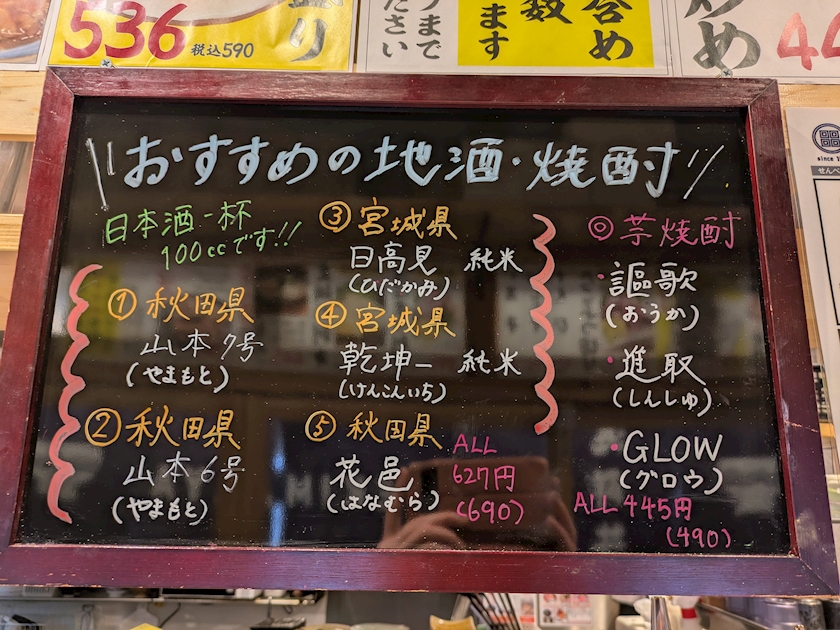 536
税込590
盛り
まで
ださい
含め
数
ます
炒め
44
おすすめの地酒・焼酎
日本酒一杯
100ccです!!
① 秋田県
山本7号
(やまもと)
② 秋田県
山本6号
(やまもと)
③ 宮城県
日高見 純米
(ひだかみ)
④ 宮城県
乾坤一 純米
(けんこんいち)
⑤ 秋田県
花邑
(はなむら)
ALL
627円
(690)
◎ 芋焼酎
・謳歌
(おうか)
・進取
(しんしゅ)
・GLOW
(グロウ)
ALL 445円
(490)
since
せんべ